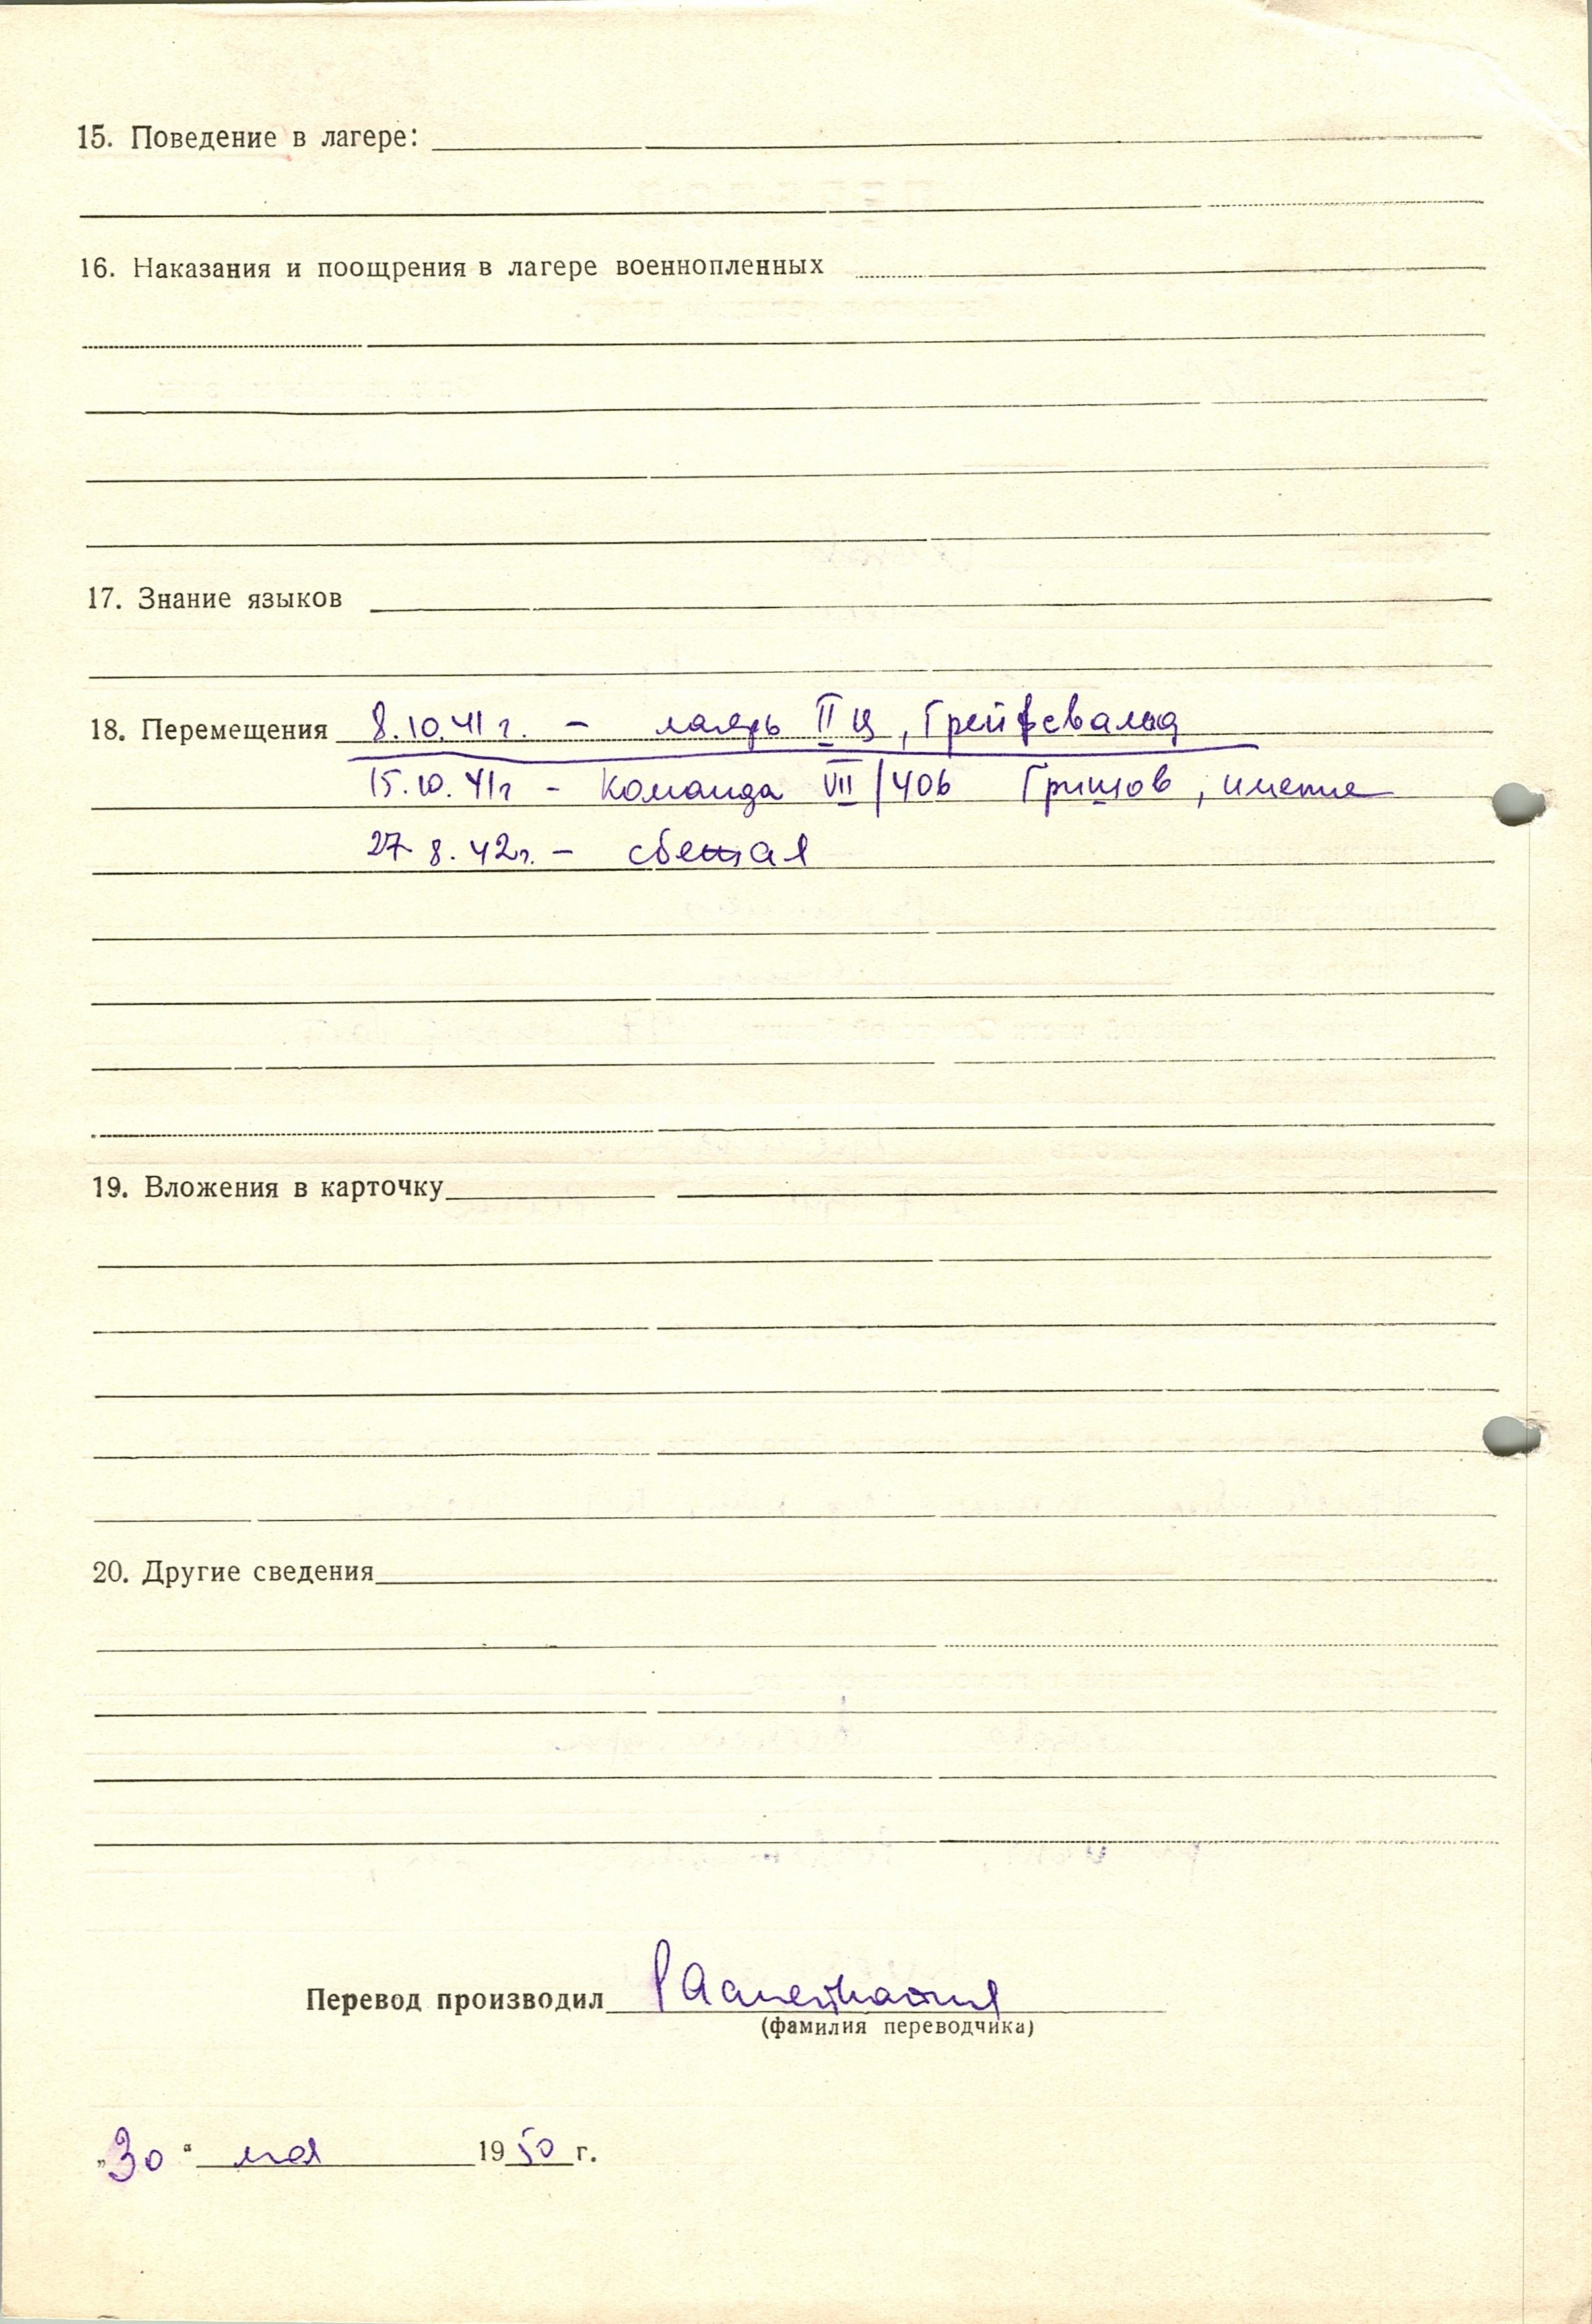 15. Поведение в лагере:
16. Наказания и поощрения в лагере военнопленных
17. Знание языков
18. Перемещения 8.10.41 г. – лагерь II Ц, Грейфсвальд
15.10.41г - команда VII/406 Гришов, имение
27 8.42г. – сбежал
19. Вложения в карточку
20. Другие сведения
Перевод производил
(фамилия переводчика)
„30“ мая 1950 г.